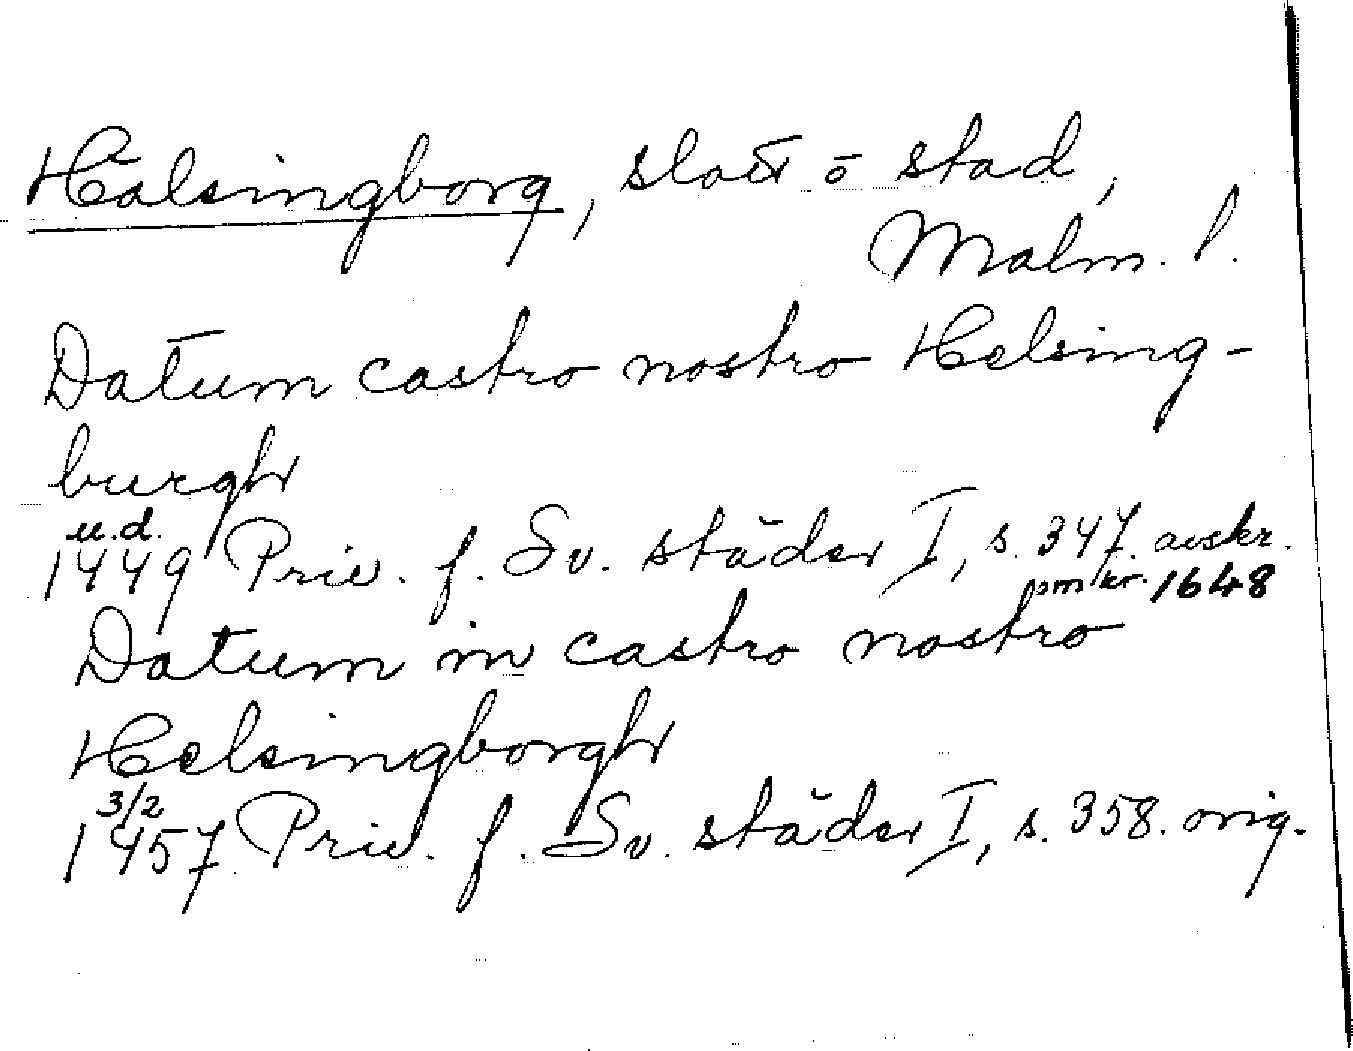 Hälsingborg, slott o stad,
Malm. l.
Datum castro nostro Helsing-
burgh
u.d.
1449 Priv. f. Sv. städer I, s. 347. avskr.
omkr. 1648
Datum in castro nostro
Helsingborgh
3/2
1457 Priv. f. Sv. städer I, s. 358. orig.